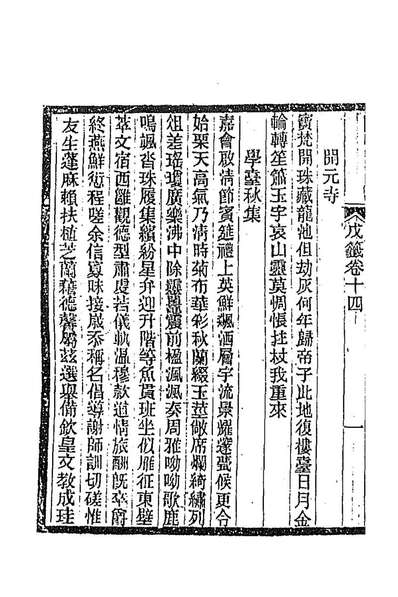 戊籤卷十四
一
開元寺
寶梵開珠藏龍池但劫灰何年歸帝子此地復樓臺日月金
輪轉笙簫玉宇哀山靈莫惆悵拄杖我重來
學臺秋集
嘉會啟清節賓筵禮上英鮮飇酒層宇流景耀邃甍候更令
始栗天高氣乃清時菊布華彩秋蘭綴玉莖敞席爛綺繡列
俎差瑤瓊廣樂沸中除靈鼉震前楹渢渢奏周雅呦呦歌鹿
鳴颯沓珠履集繽紛星弁迎升階等魚貫班坐似雁征東壁
萃文宿西雝觀德型肅虔若儀軌溫穆款道情旅酬旣卒爵
終燕鮮衍程嗟余信寡昧接晨忝稱名倡導謝師訓切磋惟
友生蓬麻賴扶植芝蘭藉德馨屬茲選舉備欽皇文敎成珪